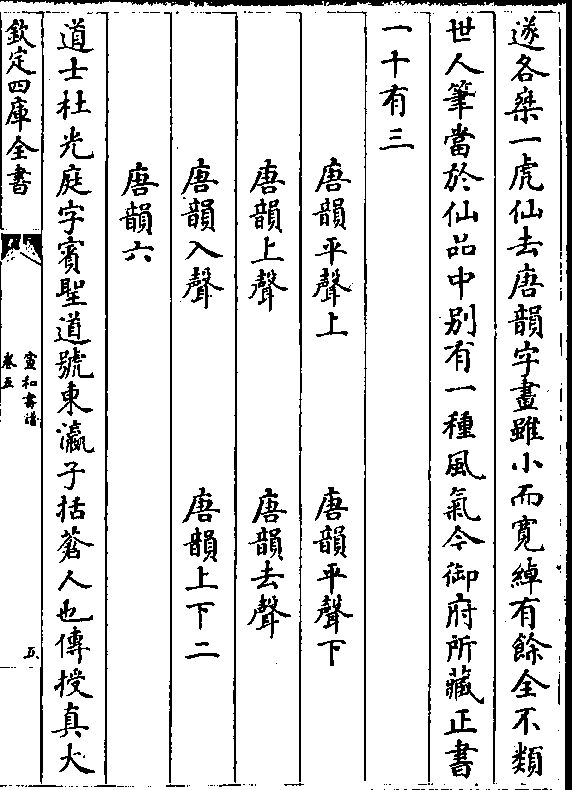 遂各乗一虎仙去唐韻字畫雖小而寛綽有餘全不類
世人筆當於仙品中别有一種風氣今御府所藏正書
一十有三
唐韻平聲上　唐韻平聲下
唐韻上聲　唐韻去聲
唐韻入聲　唐韻上下二
唐韻六
道士杜光庭字賓聖道號東瀛子括蒼人也傳授真大
欽定四庫全書
宣和書譜
卷五
五